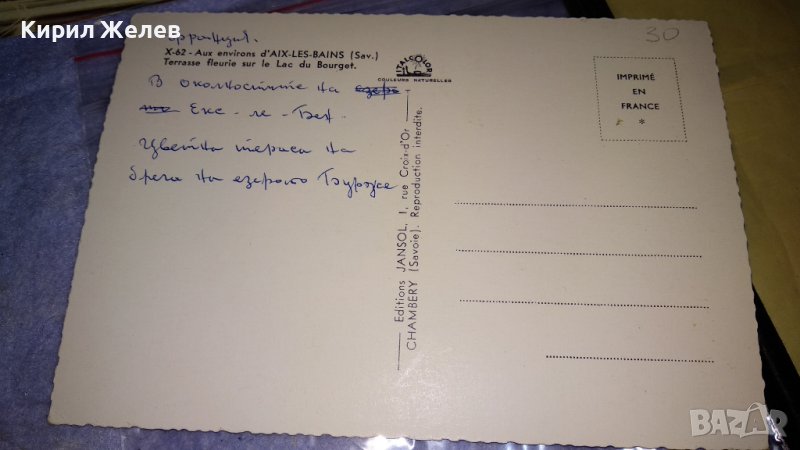 Кирил Желев
Франция.
X-62 - Aux environs d'AIX-LES-BAINS (Sav.)
Terrasse fleurie sur le Lac du Bourget.
ITALCOLOR
COULEURS NATURELLES
30
IMPRIMÉ
EN
FRANCE
*
В околностите на езеро
то Екс-ле-Бен.
Цветна тераса на
брега на езерото Бурже
Editions JANSOL, 1, rue Croix-d'Or
CHAMBÉRY (Savoie). Reproduction interdite.
BAZAR